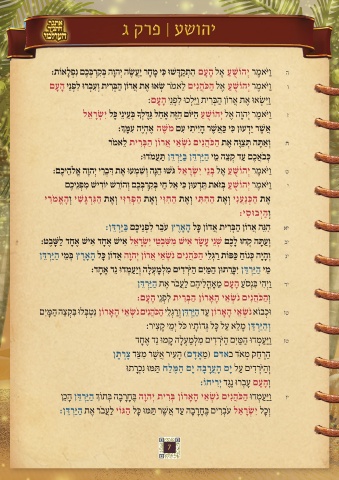 יהושע | פרק ג
ה וַיֹּאמֶר יְהוֹשֻׁעַ אֶל הָעָם הִתְקַדָּשׁוּ כִּי מָחָר יַעֲשֶׂה יְהוָה בְּקִרְבְּכֶם נִפְלָאוֹת:
ו וַיֹּאמֶר יְהוֹשֻׁעַ אֶל הַכֹּהֲנִים לֵאמֹר שְׂאוּ אֶת אֲרוֹן הַבְּרִית וְעִבְרוּ לִפְנֵי הָעָם
וַיִּשְׂאוּ אֶת אֲרוֹן הַבְּרִית וַיֵּלְכוּ לִפְנֵי הָעָם:
ז וַיֹּאמֶר יְהוָה אֶל יְהוֹשֻׁעַ הַיּוֹם הַזֶּה אָחֵל גַּדֶּלְךָ בְּעֵינֵי כָּל יִשְׂרָאֵל
אֲשֶׁר יֵדְעוּן כִּי כַּאֲשֶׁר הָיִיתִי עִם מֹשֶׁה אֶהְיֶה עִמָּךְ:
ח וְאַתָּה תְּצַוֶּה אֶת הַכֹּהֲנִים נֹשְׂאֵי אֲרוֹן הַבְּרִית לֵאמֹר
כְּבֹאֲכֶם עַד קְצֵה מֵי הַיַּרְדֵּן בַּיַּרְדֵּן תַּעֲמֹדוּ:
ט וַיֹּאמֶר יְהוֹשֻׁעַ אֶל בְּנֵי יִשְׂרָאֵל גֹּשׁוּ הֵנָּה וְשִׁמְעוּ אֶת דִּבְרֵי יְהוָה אֱלֹהֵיכֶם:
י וַיֹּאמֶר יְהוֹשֻׁעַ בְּזֹאת תֵּדְעוּן כִּי אֵל חַי בְּקִרְבְּכֶם וְהוֹרֵשׁ יוֹרִישׁ מִפְּנֵיכֶם
אֶת הַכְּנַעֲנִי וְאֶת הַחִתִּי וְאֶת הַחִוִּי וְאֶת הַפְּרִזִּי וְאֶת הַגִּרְגָּשִׁי וְהָאֱמֹרִי
וְהַיְבוּסִי:
יא הִנֵּה אֲרוֹן הַבְּרִית אֲדוֹן כָּל הָאָרֶץ עֹבֵר לִפְנֵיכֶם בַּיַּרְדֵּן:
יב וְעַתָּה קְחוּ לָכֶם שְׁנֵי עָשָׂר אִישׁ מִשִּׁבְטֵי יִשְׂרָאֵל אִישׁ אֶחָד אִישׁ אֶחָד לַשָּׁבֶט:
יג וְהָיָה כְּנוֹחַ כַּפּוֹת רַגְלֵי הַכֹּהֲנִים נֹשְׂאֵי אֲרוֹן יְהוָה אֲדוֹן כָּל הָאָרֶץ בְּמֵי הַיַּרְדֵּן
מֵי הַיַּרְדֵּן יִכָּרֵתוּן הַמַּיִם הַיֹּרְדִים מִלְמָעְלָה וְיַעַמְדוּ נֵד אֶחָד:
יד וַיְהִי בִּנְסֹעַ הָעָם מֵאָהֳלֵיהֶם לַעֲבֹר אֶת הַיַּרְדֵּן
וְהַכֹּהֲנִים נֹשְׂאֵי הָאָרוֹן הַבְּרִית לִפְנֵי הָעָם:
טו וּכְבוֹא נֹשְׂאֵי הָאָרוֹן עַד הַיַּרְדֵּן וְרַגְלֵי הַכֹּהֲנִים נֹשְׂאֵי הָאָרוֹן נִטְבְּלוּ בִּקְצֵה הַמָּיִם
וְהַיַּרְדֵּן מָלֵא עַל כָּל גְּדוֹתָיו כֹּל יְמֵי קָצִיר:
טז וַיַּעַמְדוּ הַמַּיִם הַיֹּרְדִים מִלְמַעְלָה קָמוּ נֵד אֶחָד
הַרְחֵק מְאֹד באדם (מֵאָדָם) הָעִיר אֲשֶׁר מִצַּד צָרְתָן
וְהַיֹּרְדִים עַל יָם הָעֲרָבָה יָם הַמֶּלַח תַּמּוּ נִכְרָתוּ
וְהָעָם עָבְרוּ נֶגֶד יְרִיחוֹ:
יז וַיַּעַמְדוּ הַכֹּהֲנִים נֹשְׂאֵי הָאָרוֹן בְּרִית יְהוָה בֶּחָרָבָה בְּתוֹךְ הַיַּרְדֵּן הָכֵן
וְכָל יִשְׂרָאֵל עֹבְרִים בֶּחָרָבָה עַד אֲשֶׁר תַּמּוּ כָּל הַגּוֹי לַעֲבֹר אֶת הַיַּרְדֵּן: